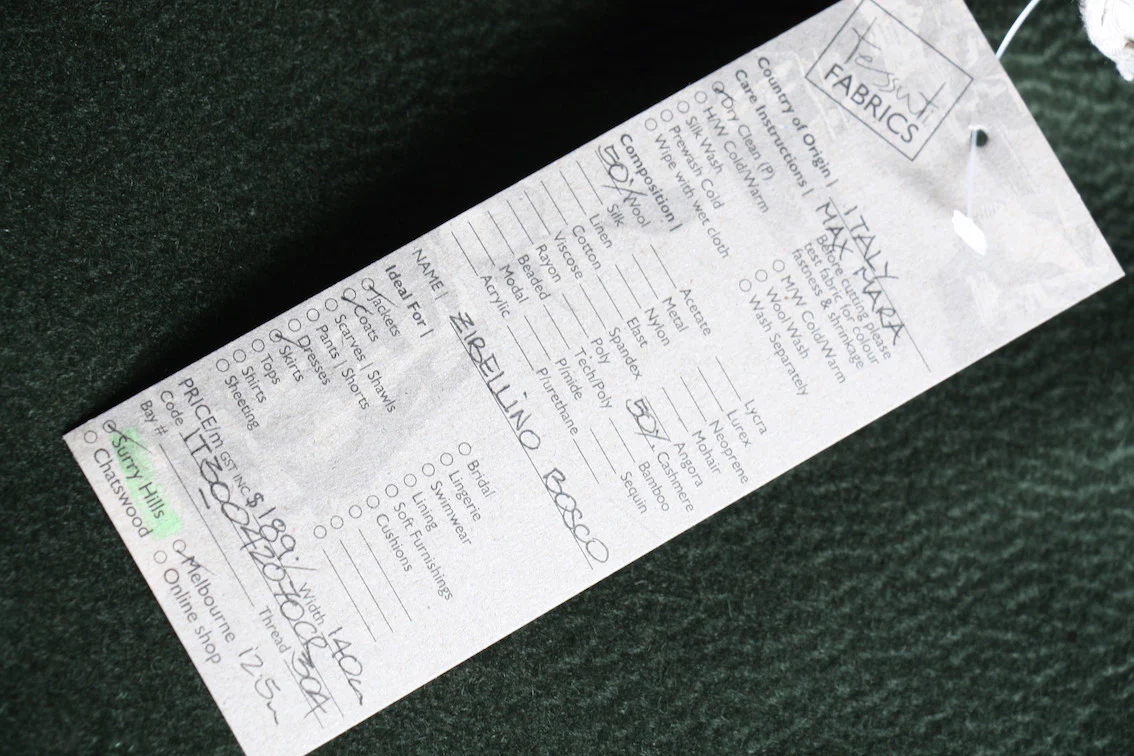 tessuti
FABRICS
Country of Origin | ITALY
MAX MARA
Care Instructions | Before cutting please
test fabric for colour
fastness & shrinkage
Dry Clean (P)
H/W Cold/Warm
Silk Wash
Prewash Cold
Wipe with wet cloth
M/W Cold/Warm
Wool Wash
Wash Separately
Composition |
50% Wool
Silk
Linen
Cotton
Viscose
Rayon
Beaded
Modal
Acrylic
Acetate
Metal
Nylon
Elast
Spandex
Poly
Tech/Poly
P/mide
P/urethane
Lycra
Lurex
Neoprene
Mohair
Angora
50% Cashmere
Bamboo
Sequin
NAME | ZIBELLINO BOSCO
Ideal For |
Jackets
Coats
Scarves | Shawls
Pants | Shorts
Dresses
Skirts
Tops
Shirts
Sheeting
Bridal
Lingerie
Swimwear
Lining
Soft Furnishings
Cushions
PRICE/m GST INC $189/ Width 140cm
Code
Thread 304
Bay #
Surry Hills
Melbourne 12.5m
Chatswood
Online shop